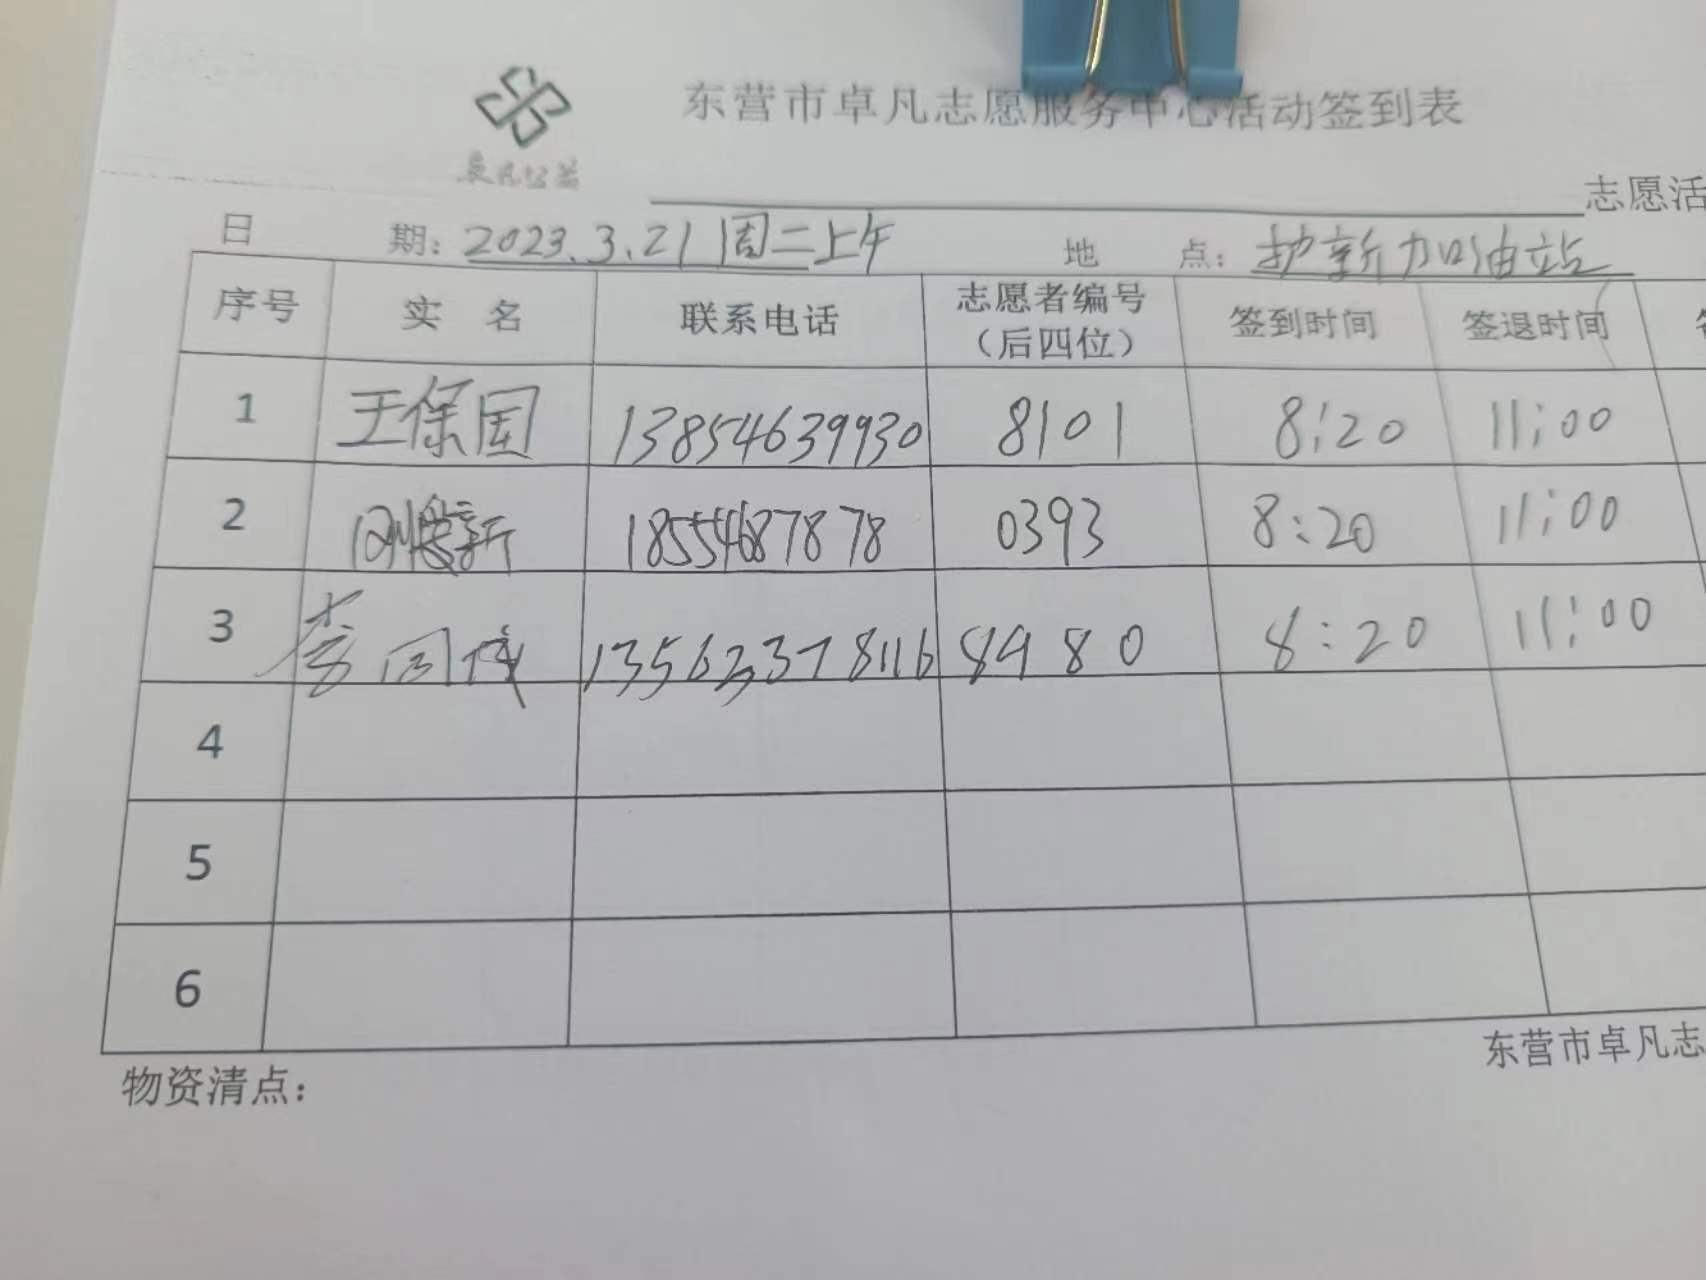 东营市卓凡志愿服务中心活动签到表
卓凡公益
志愿活
日 期：2023.3.21周二上午 地 点：护新加油站
序号 实 名 联系电话 志愿者编号（后四位） 签到时间 签退时间
1 王保国 13854639930 8101 8:20 11:00
2 18554687878 0393 8:20 11:00
3 李 13562378116 8980 8:20 11:00
4
5
6
东营市卓凡志
物资清点：